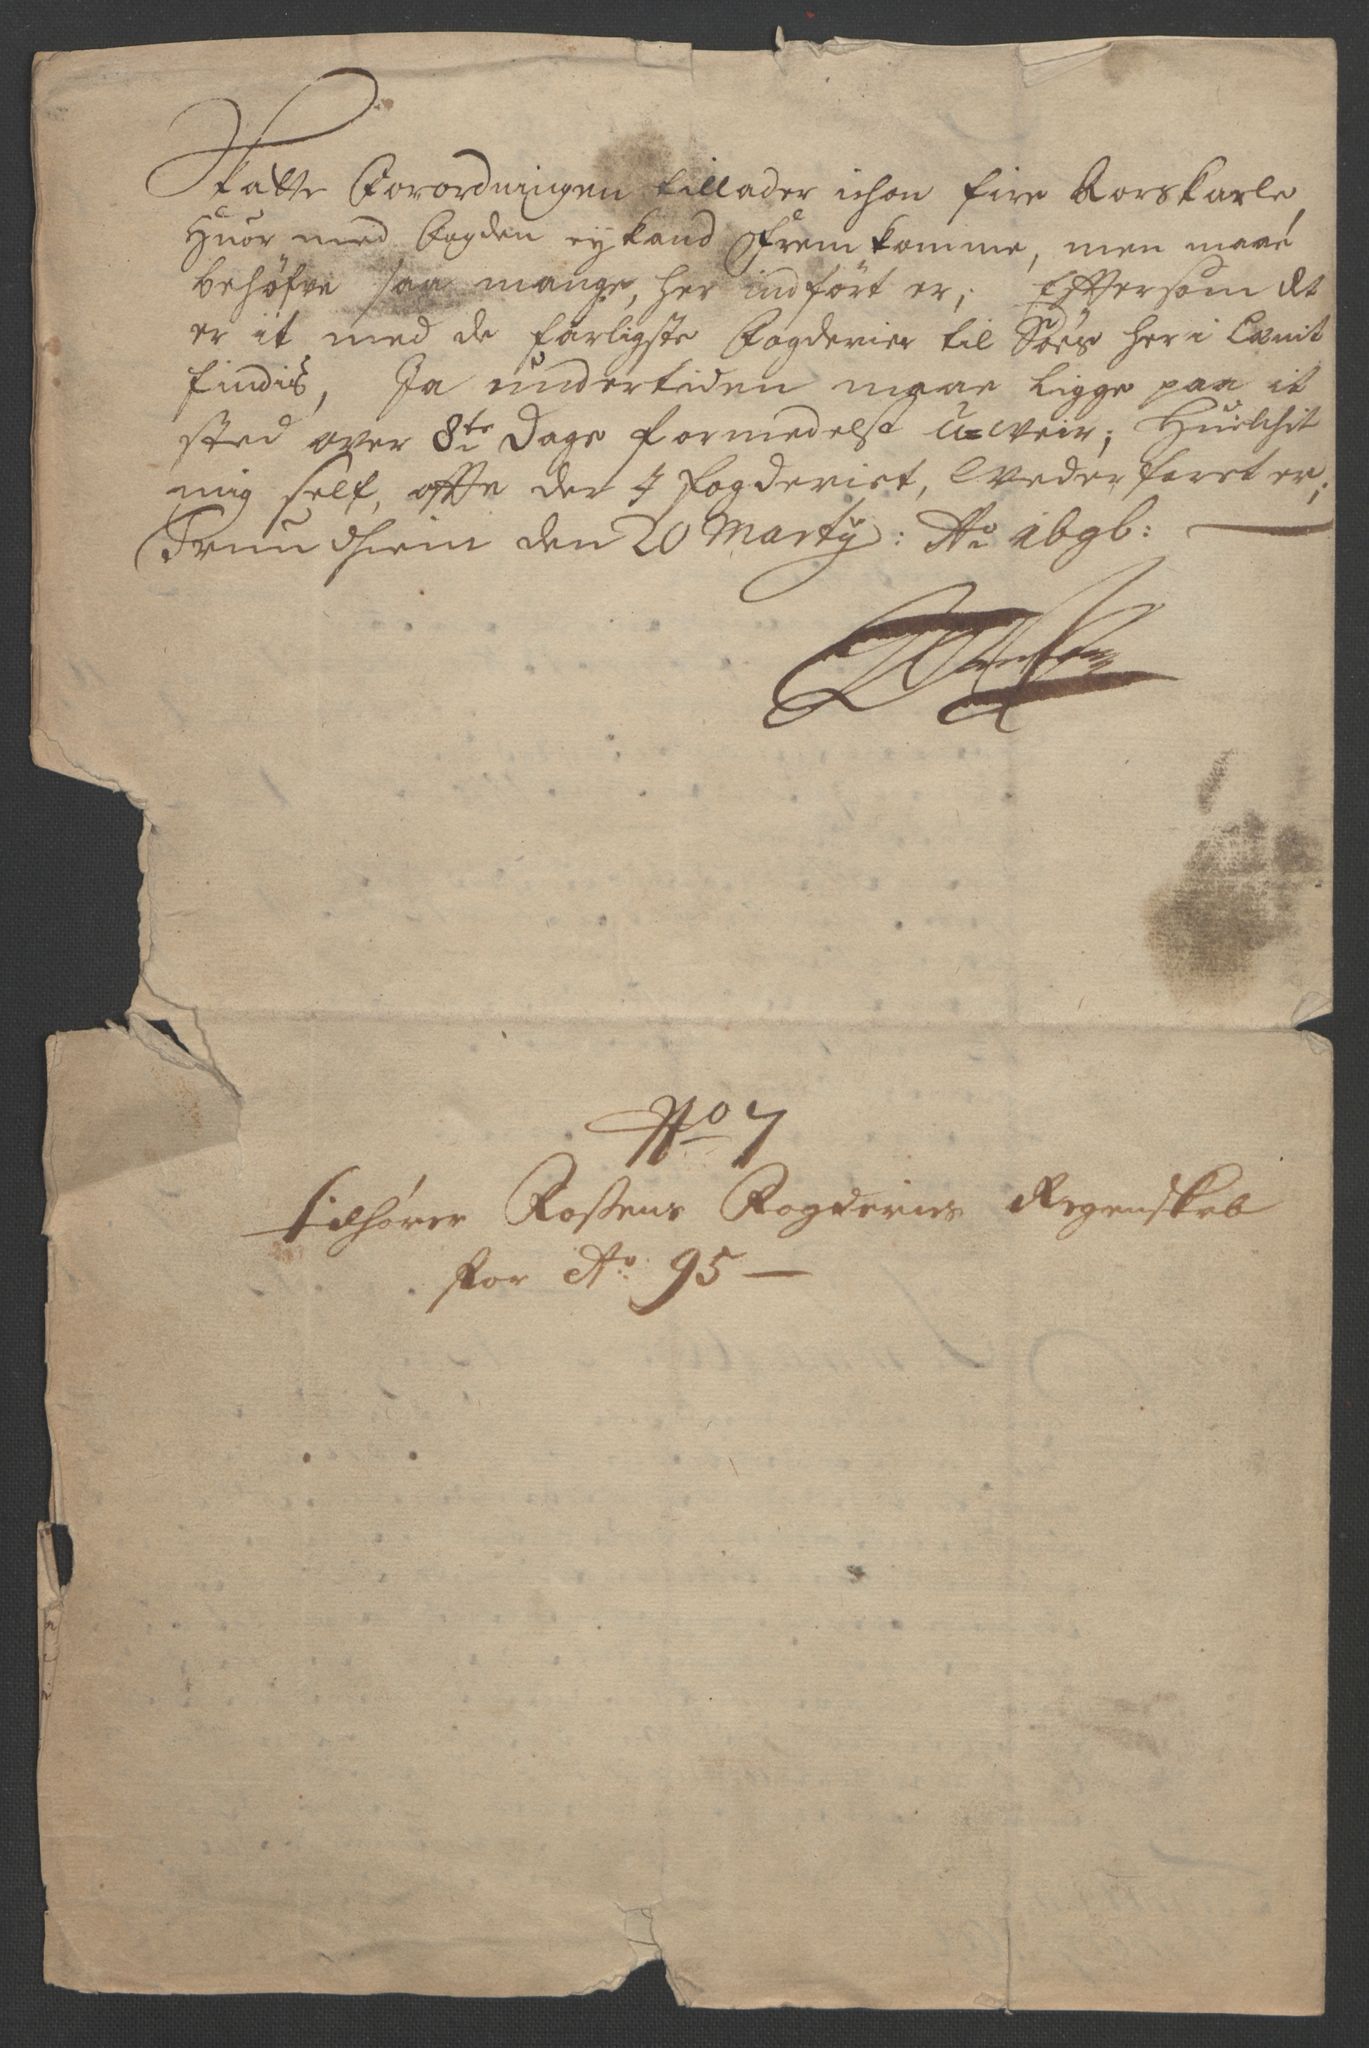 Skatte Forordningen tillader ichon fire Rorskarle,
Huor med Fogden ey kand fremkomme, men maae
behøfve saa mange, her indført er; Efftersom det
er it med de farligste Fogderier til Søes her i Landt
findis, Ja undertiden maae ligge paa it
sted over 8te Dage formedelst U=weir; Huilchit
mig self, offte der i fogderiet, Wederfaret er;
Trundhiem den 20 Martij: Ao 1696:
No 7
tilhører Fossens Fogderies Regenskab
for Ao 95 —